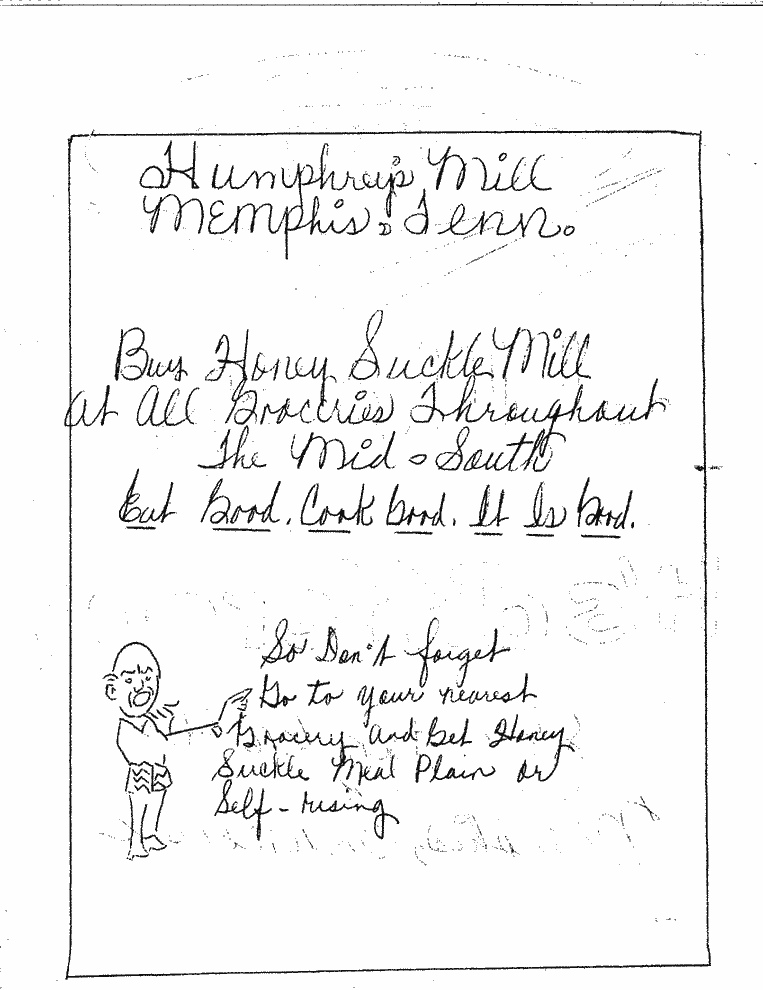 Humphreys Mill
Memphis, Tenn.
Buy Honey Suckle Mill
At All Groceries Throughout
The Mid-South
Eat Good. Cook Good. It Is Good.
So Don't forget
Go to your nearest
Grocery and Get Honey
Suckle Meal Plain or
Self-rising